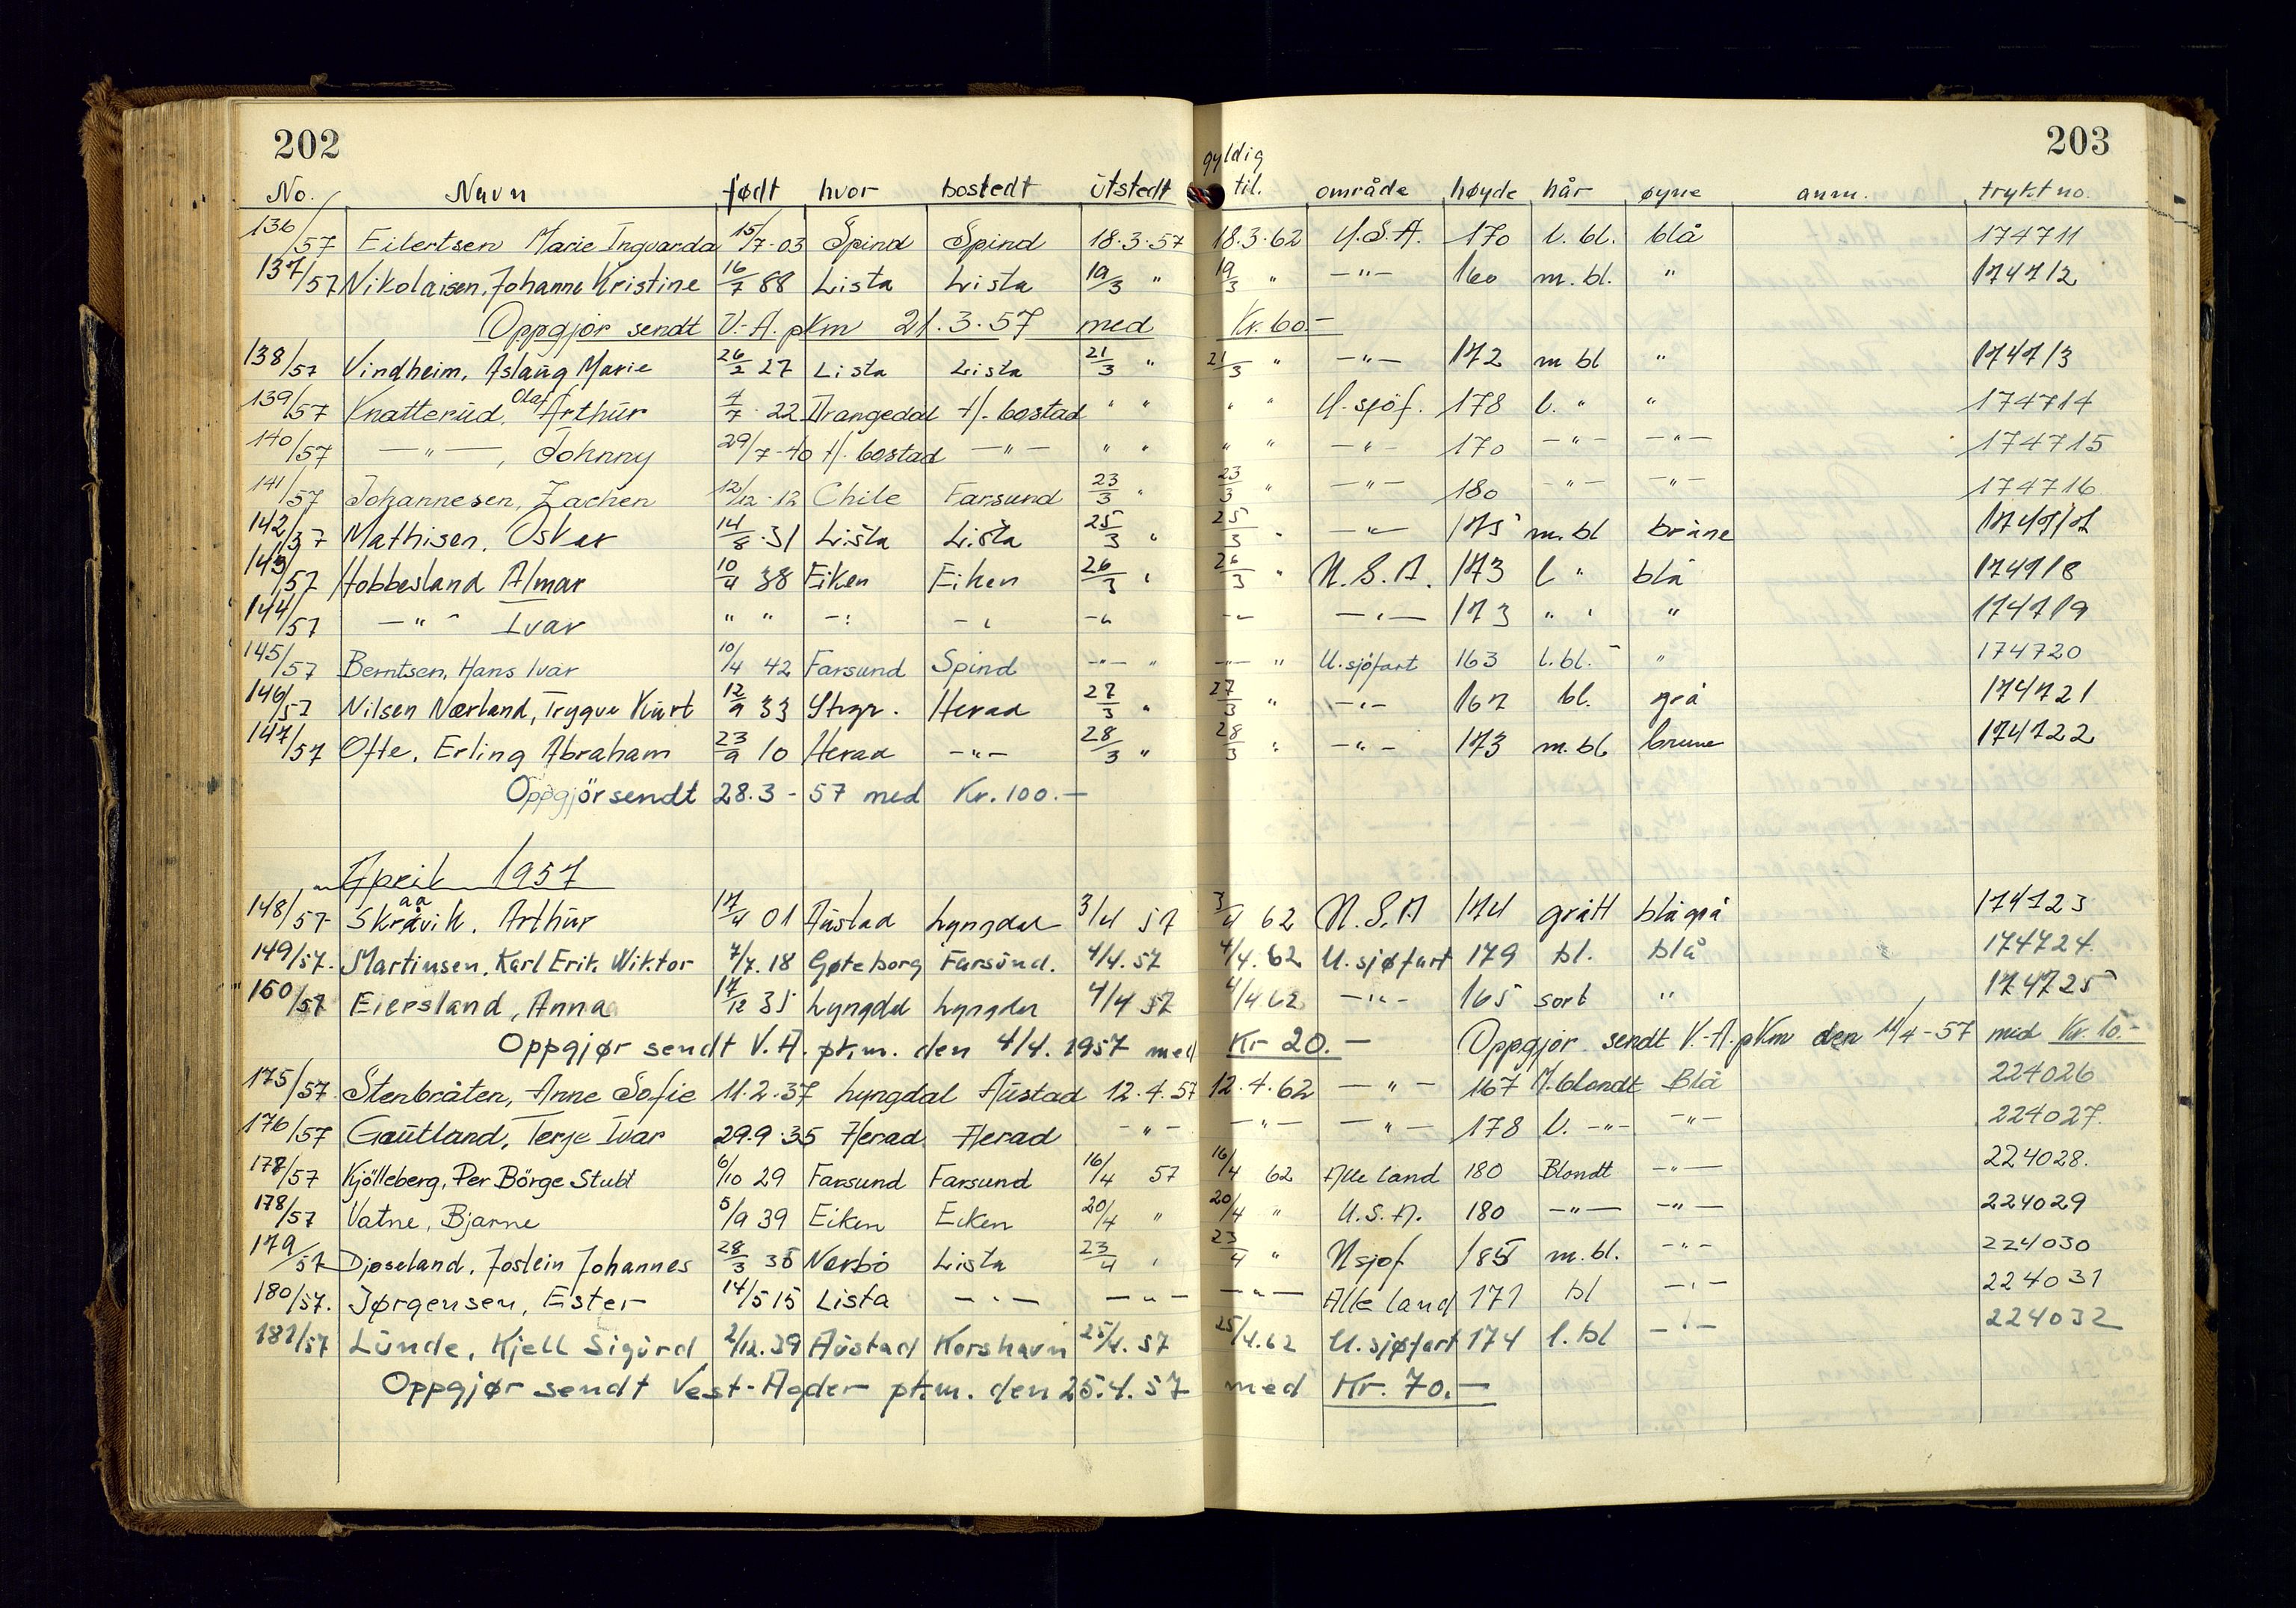 202
203
gyldig
No. Navn født hvor bostedt utstedt til. område høyde hår øyne anm. trykt no.
136/57 Eilertsen Marie Ingvarda 15/7-03 Spind Spind 18.3.57 18.3.62 U.S.A. 170 l. bl. blå 174711
137/57 Nikolaisen, Johanne Kristine 16/7 88 Lista Lista 19/3 " 19/3 " -"- 160 m. bl. " 174712
Oppgjör sendt V.-A. pkm 21.3.57 med Kr. 60.-
138/57 Vindheim, Aslaug Marie 26/2 27 Lista Lista 21/3 " 21/3 " -"- 172 m bl " 174713
139/57 Knatterud, Olaf Arthur 4/7.22 Drangedal H. bostad " " " " U.sjöf. 178 l. " " 174714
140/57 -"-, Johnny 29/7-40 H. bostad -"- " " " " -"- 170 -"- -"- 174715
141/57 Johannesen, Zachen 12/12.12 Chile Farsund 23/3 " 23/3 " -"- 180 -"- -"- 174716
142/57 Mathisen, Oskar 14/8.31 Lista Lista 25/3 " 25/3 " -"- 175 m. bl brune 174717
143/57 Hobbesland Almar 10/4 38 Eiken Eiken 26/3 " 26/3 " U.S.A. 173 l " blå 174718
144/57 -"- Ivar " " -" -" -" -" -"- 173 " " " 174719
145/57 Berntsen, Hans Ivar 10/4 42 Farsund Spind -"- " -"- " U.sjöfart 163 l.bl. " 174720
146/57 Nilsen Nærland, Trygve Kurt 12/9 33 Stvgr. Herad 27/3 " 27/3 " -"- 167 bl. grå 174721
147/57 Ofte, Erling Abraham 23/9 10 Herad -"- 28/3 " 28/3 " -"- 173 m. bl brune 174722
Oppgjör sendt 28.3-57 med Kr. 100.-
April 1957
aa
148/57 Skråvik, Arthur 17/4 01 Austad Lyngdal 3/4 57 3/4 62 U.S.A 174 grått blågrå 174723
149/57. Martinsen, Karl Erik Wiktor 7/7.18 Gøteborg Farsund. 4/4.57 4/4.62 U.sjøfart 179 bl. blå 174724.
150/57 Eiersland, Anna 17/12 35 Lyngdal Lyngdal 4/4 57 4/4 62 -"- 165 sort " 174725
Oppgjør sendt V.A. pk.m. den 4/4. 1957 med Kr 20.- Oppgjør sendt V.-A. pkm den 11/4-57 med Kr. 10.-
175/57. Stenbråten, Anne Sofie 11.2.37 Lyngdal Austad 12.4.57 12.4.62 -"- 167 M.blondt Blå 224026
176/57 Gautland, Terje Ivar 29.9.35 Herad Herad -"- -"- -"- 178 l. -"- -"- 224027.
177/57 Kjölleberg, Per Börge Stubt 6/10 29 Farsund Farsund 16/4 57 16/4 62 Alle land 180 Blondt -"- 224028.
178/57 Vatne, Bjarne 5/9 39 Eiken Eiken 20/4 " 20/4 " U.S.A. 180 -"- -"- 224029
179/57 Djøseland, Jostein Johannes 28/3 35 Nærbö Lista 23/4 " 23/4 " U sjöf 185 m. bl. -"- 224030
180/57. Jørgensen, Ester 14/5 15 Lista -"- -"- -"- Alle land 171 bl -"- 224031
181/57 Lunde, Kjell Sigurd 2/12.39 Austad Korshavn 25/4.57 25/4.62 U.sjøfart 174 l. bl -"- 224032
Oppgjør sendt Vest-Agder pk.m. den 25.4.57 med Kr. 70.-